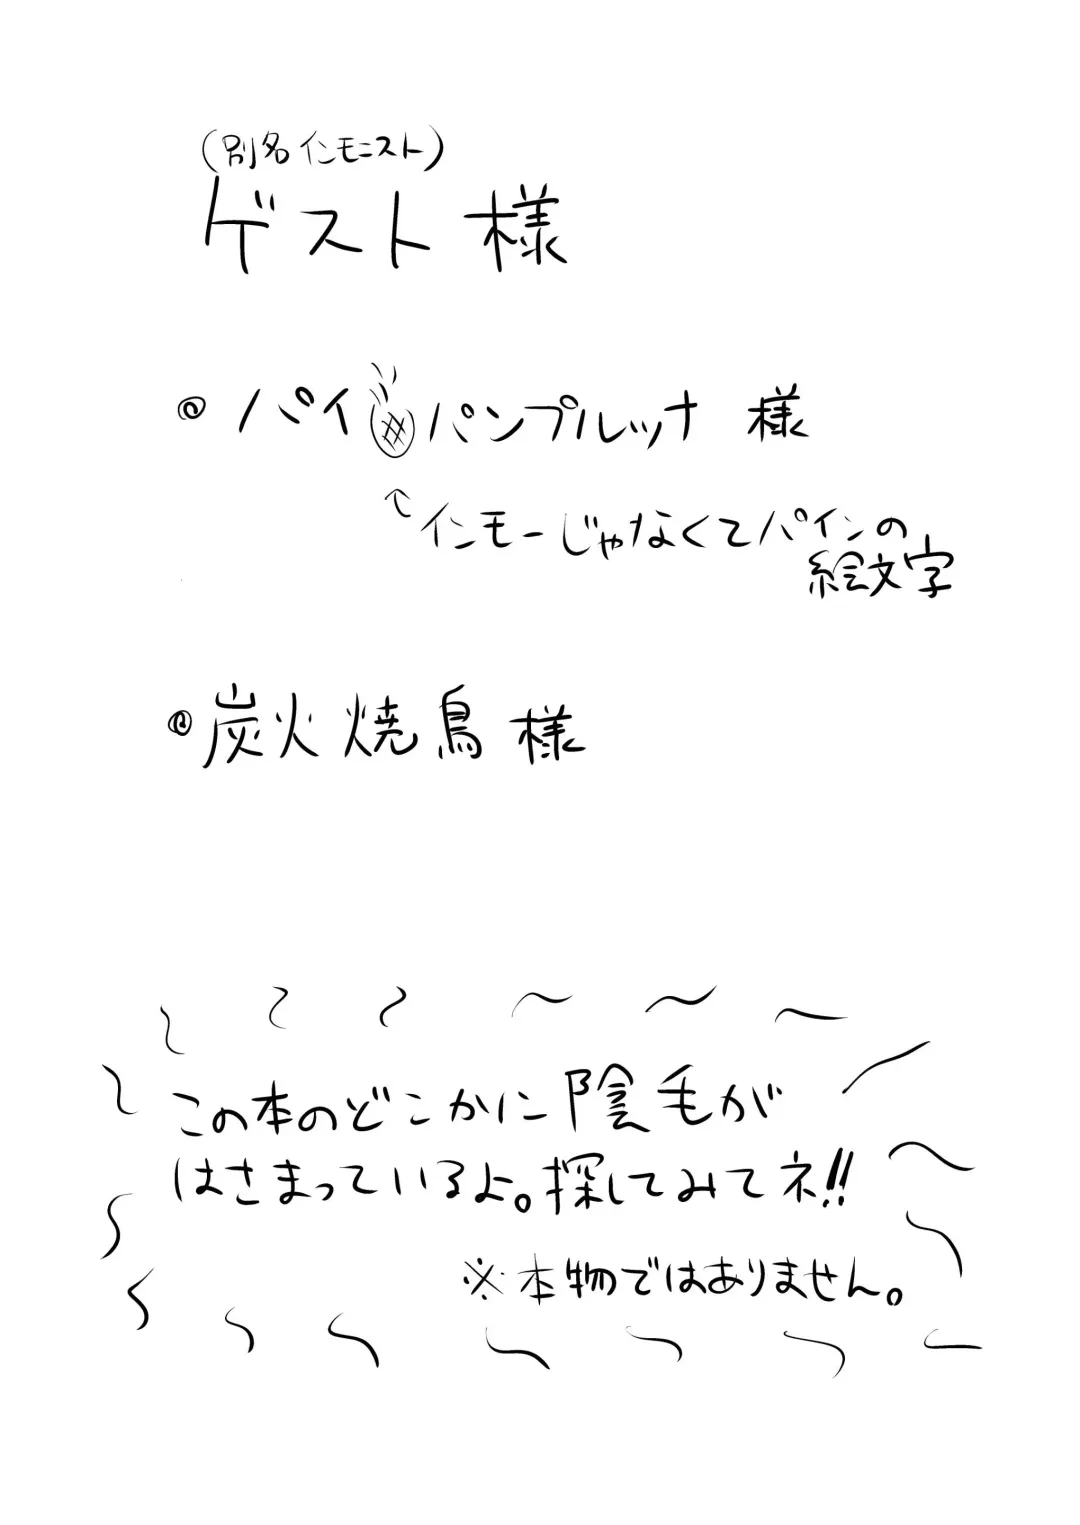 (別名インモニスト)
ゲスト様
◎パイ🍍パンプルッナ 様
↑インモーじゃなくてパインの
絵文字
◎炭火焼鳥様
この本のどこかに陰毛が
はさまっているよ。探してみてネ!!
※本物ではありません。